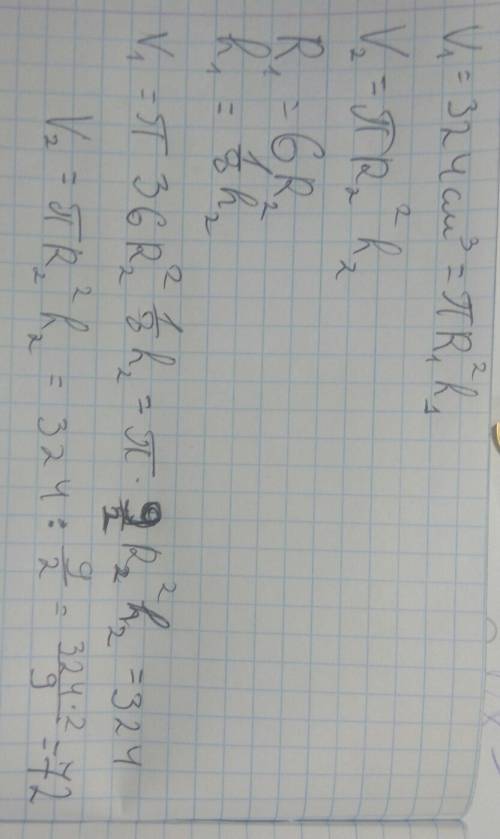 V₁ = 324 см³ = πR₁²h₁
V₂ = πR₂²h₂
R₁ = 6R₂
h₁ = 1/8 h₂
V₁ = π 36R₂² 1/8 h₂ = π · 9/2 R₂²h₂ = 324
V₂ = πR₂²h₂ = 324 : 9/2 = 324·2/9 = 72